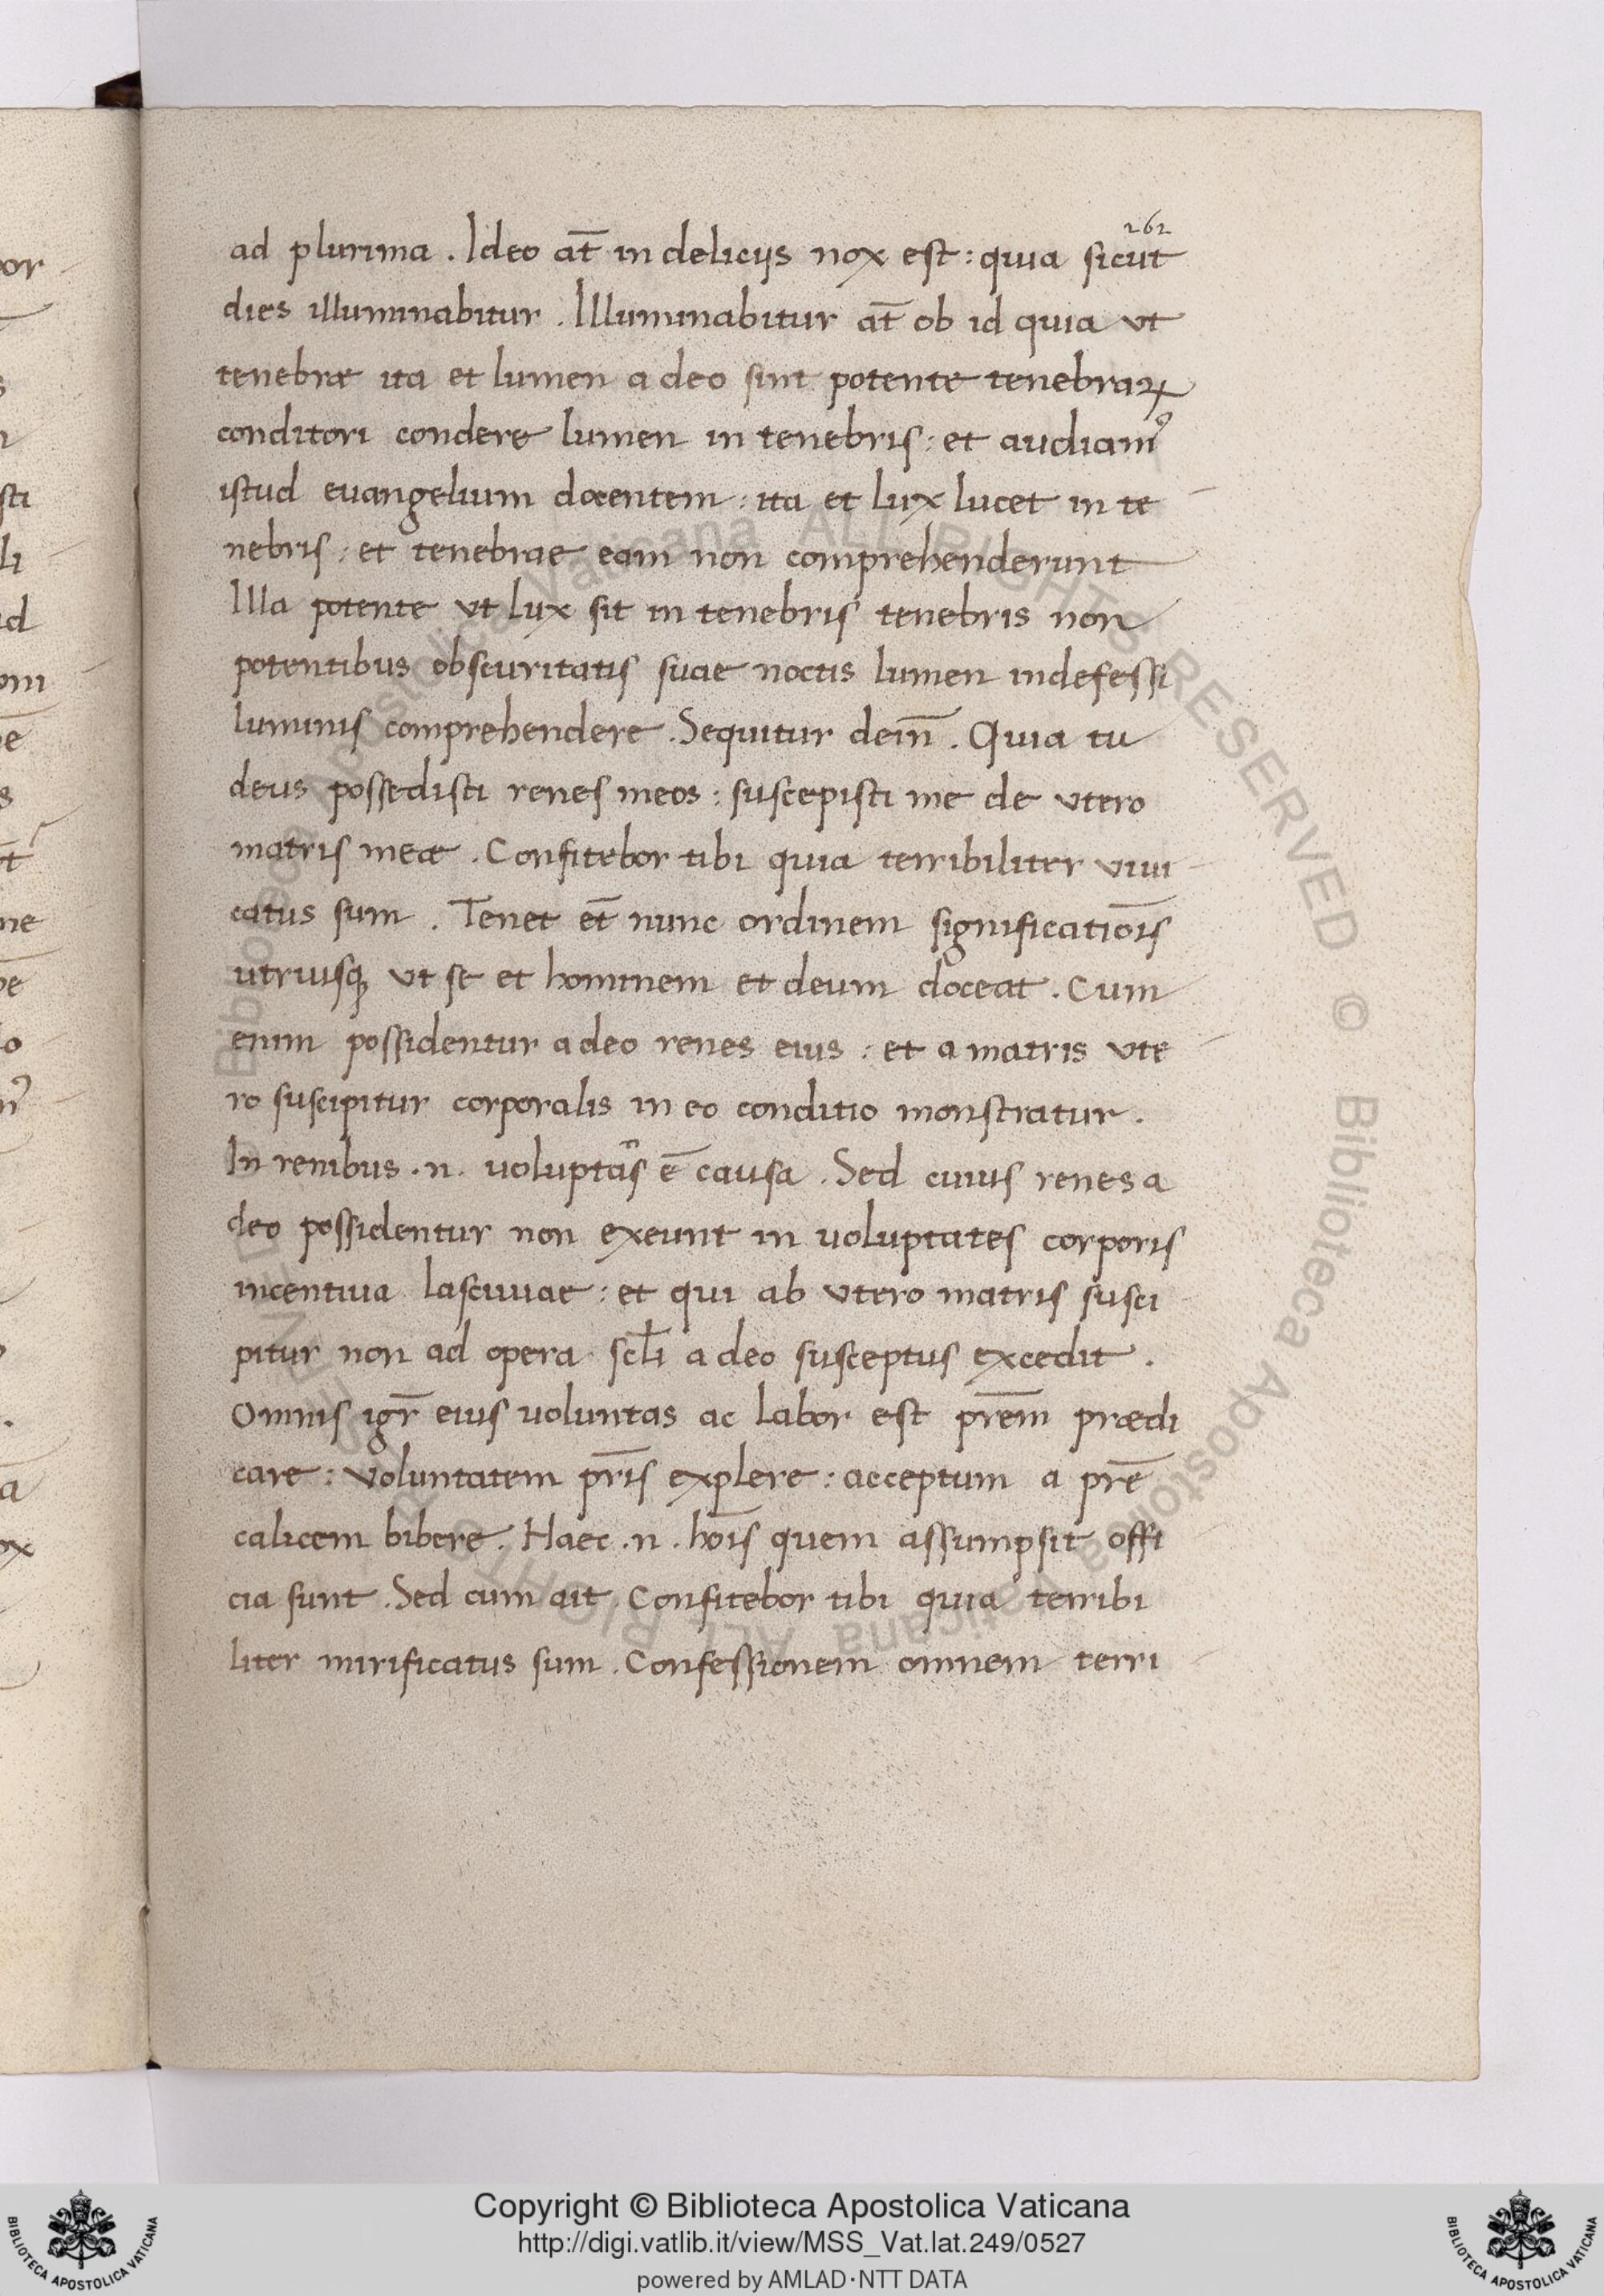 262
ad plurima . Ideo at̄ in delicijs nox est : quia sicut
dies illuminabitur . Illuminabitur at̄ ob id quia ut
tenebræ ita et lumen a deo sint potente tenebraꝝ
conditori condere lumen in tenebris : et audiamꝰ
istud euangelium docentem : ita et lux lucet in te
nebris : et tenebrae eam non comprehenderunt
Illa potente ut lux sit in tenebris tenebris non
potentibus obscuritatis suae noctis lumen indefessi
luminis comprehendere . Sequitur dein̄ . Quia tu
deus possedisti renes meos : suscepisti me de utero
matris meæ . Confitebor tibi quia terribiliter viui
catus sum . Tenet et̄ nunc ordinem significatiōis
utriusqꝫ ut se et hominem et deum doceat . Cum
enim possidentur a deo renes eius : et a matris ute
ro suscipitur corporalis in eo conditio monstratur .
In renibus .n. uoluptās ē causa . Sed cuius renes a
deo possidentur non exeunt in uoluptates corporis
incentiua lasciuiae : et qui ab utero matris susci
pitur non ad opera scł̄i a deo susceptus excedit .
Omnis igr̄ eius uoluntas ac labor est prēm prædi
care : voluntatem pr̄is explere : acceptum a prē
calicem bibere . Haec .n. hōis quem assumpsit offi
cia sunt . Sed cum ait . Confitebor tibi quia terribi
liter mirificatus sum . Confessionem omnem terri
Copyright © Biblioteca Apostolica Vaticana
http://digi.vatlib.it/view/MSS_Vat.lat.249/0527
powered by AMLAD·NTT DATA
BIBLIOTECA APOSTOLICA VATICANA
BIBLIOTECA APOSTOLICA VATICANA